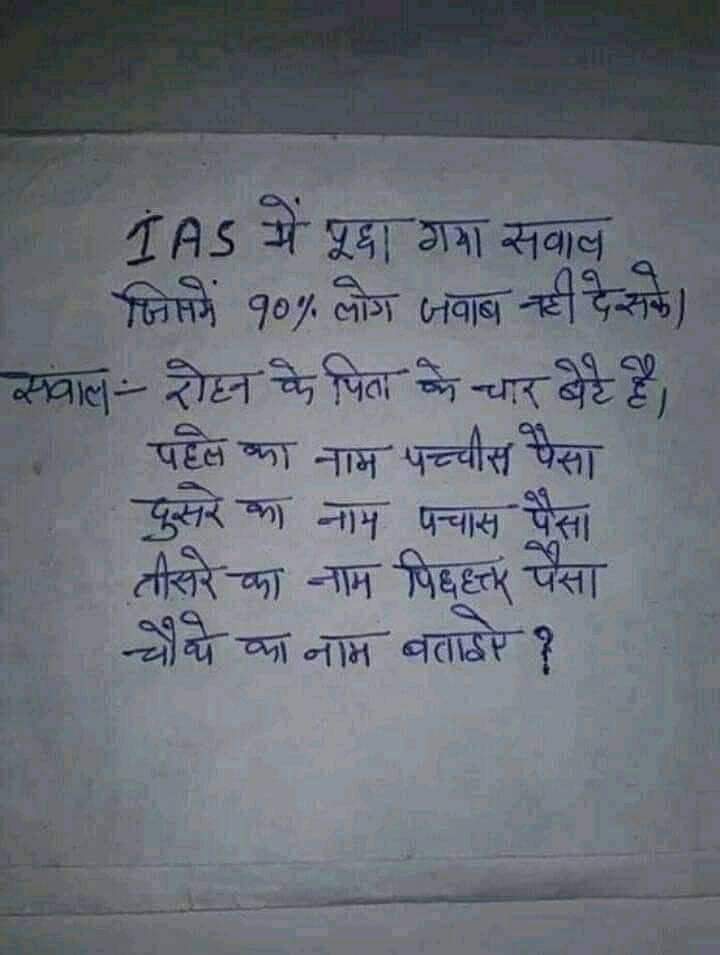 IAS में पूछा गया सवाल
जिसमें 90% लोग जवाब नही दे सके।
सवाल:- रोहन के पिता के चार बेटे है।
पहले का नाम पच्चीस पैसा
दुसरे का नाम पचास पैसा
तीसरे का नाम पिछहत्तर पैसा
चौथे का नाम बताइऐ ?